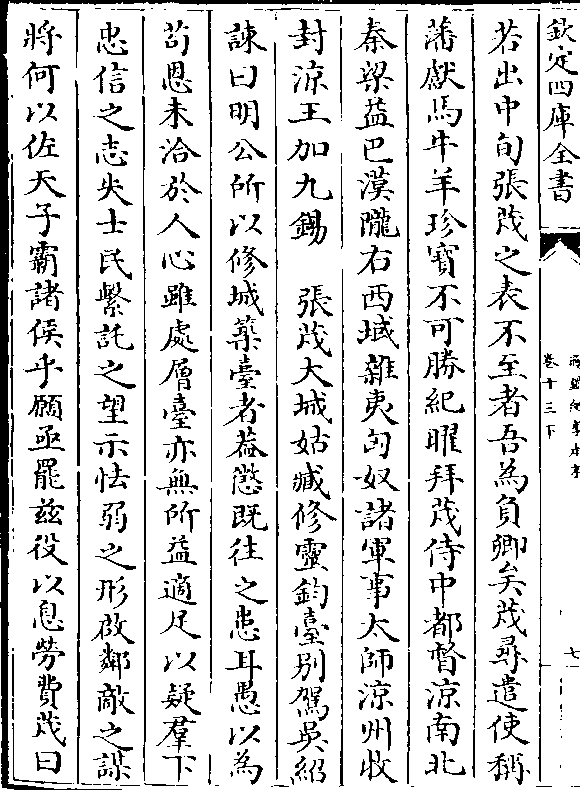 欽定四庫全書
卷十三下
七
若出中旬張茂之表不至者吾為負卿矣茂尋遣使稱
藩獻馬牛羊珍寶不可勝紀曜拜茂侍中都督涼南北
秦梁益巴漢隴右西域雜夷匈奴諸軍事太師涼州收
封涼王加九錫　張茂大城姑臧修靈鈞臺別駕吳紹
諫曰明公所以修城築臺者葢懲既往之患耳愚以為
苟恩未洽於人心雖處層臺亦無所益適足以疑羣下
忠信之志失士民繫託之望示怯弱之形啟鄰敵之謀
將何以佐天子霸諸侯乎願亟罷兹役以息勞費茂曰